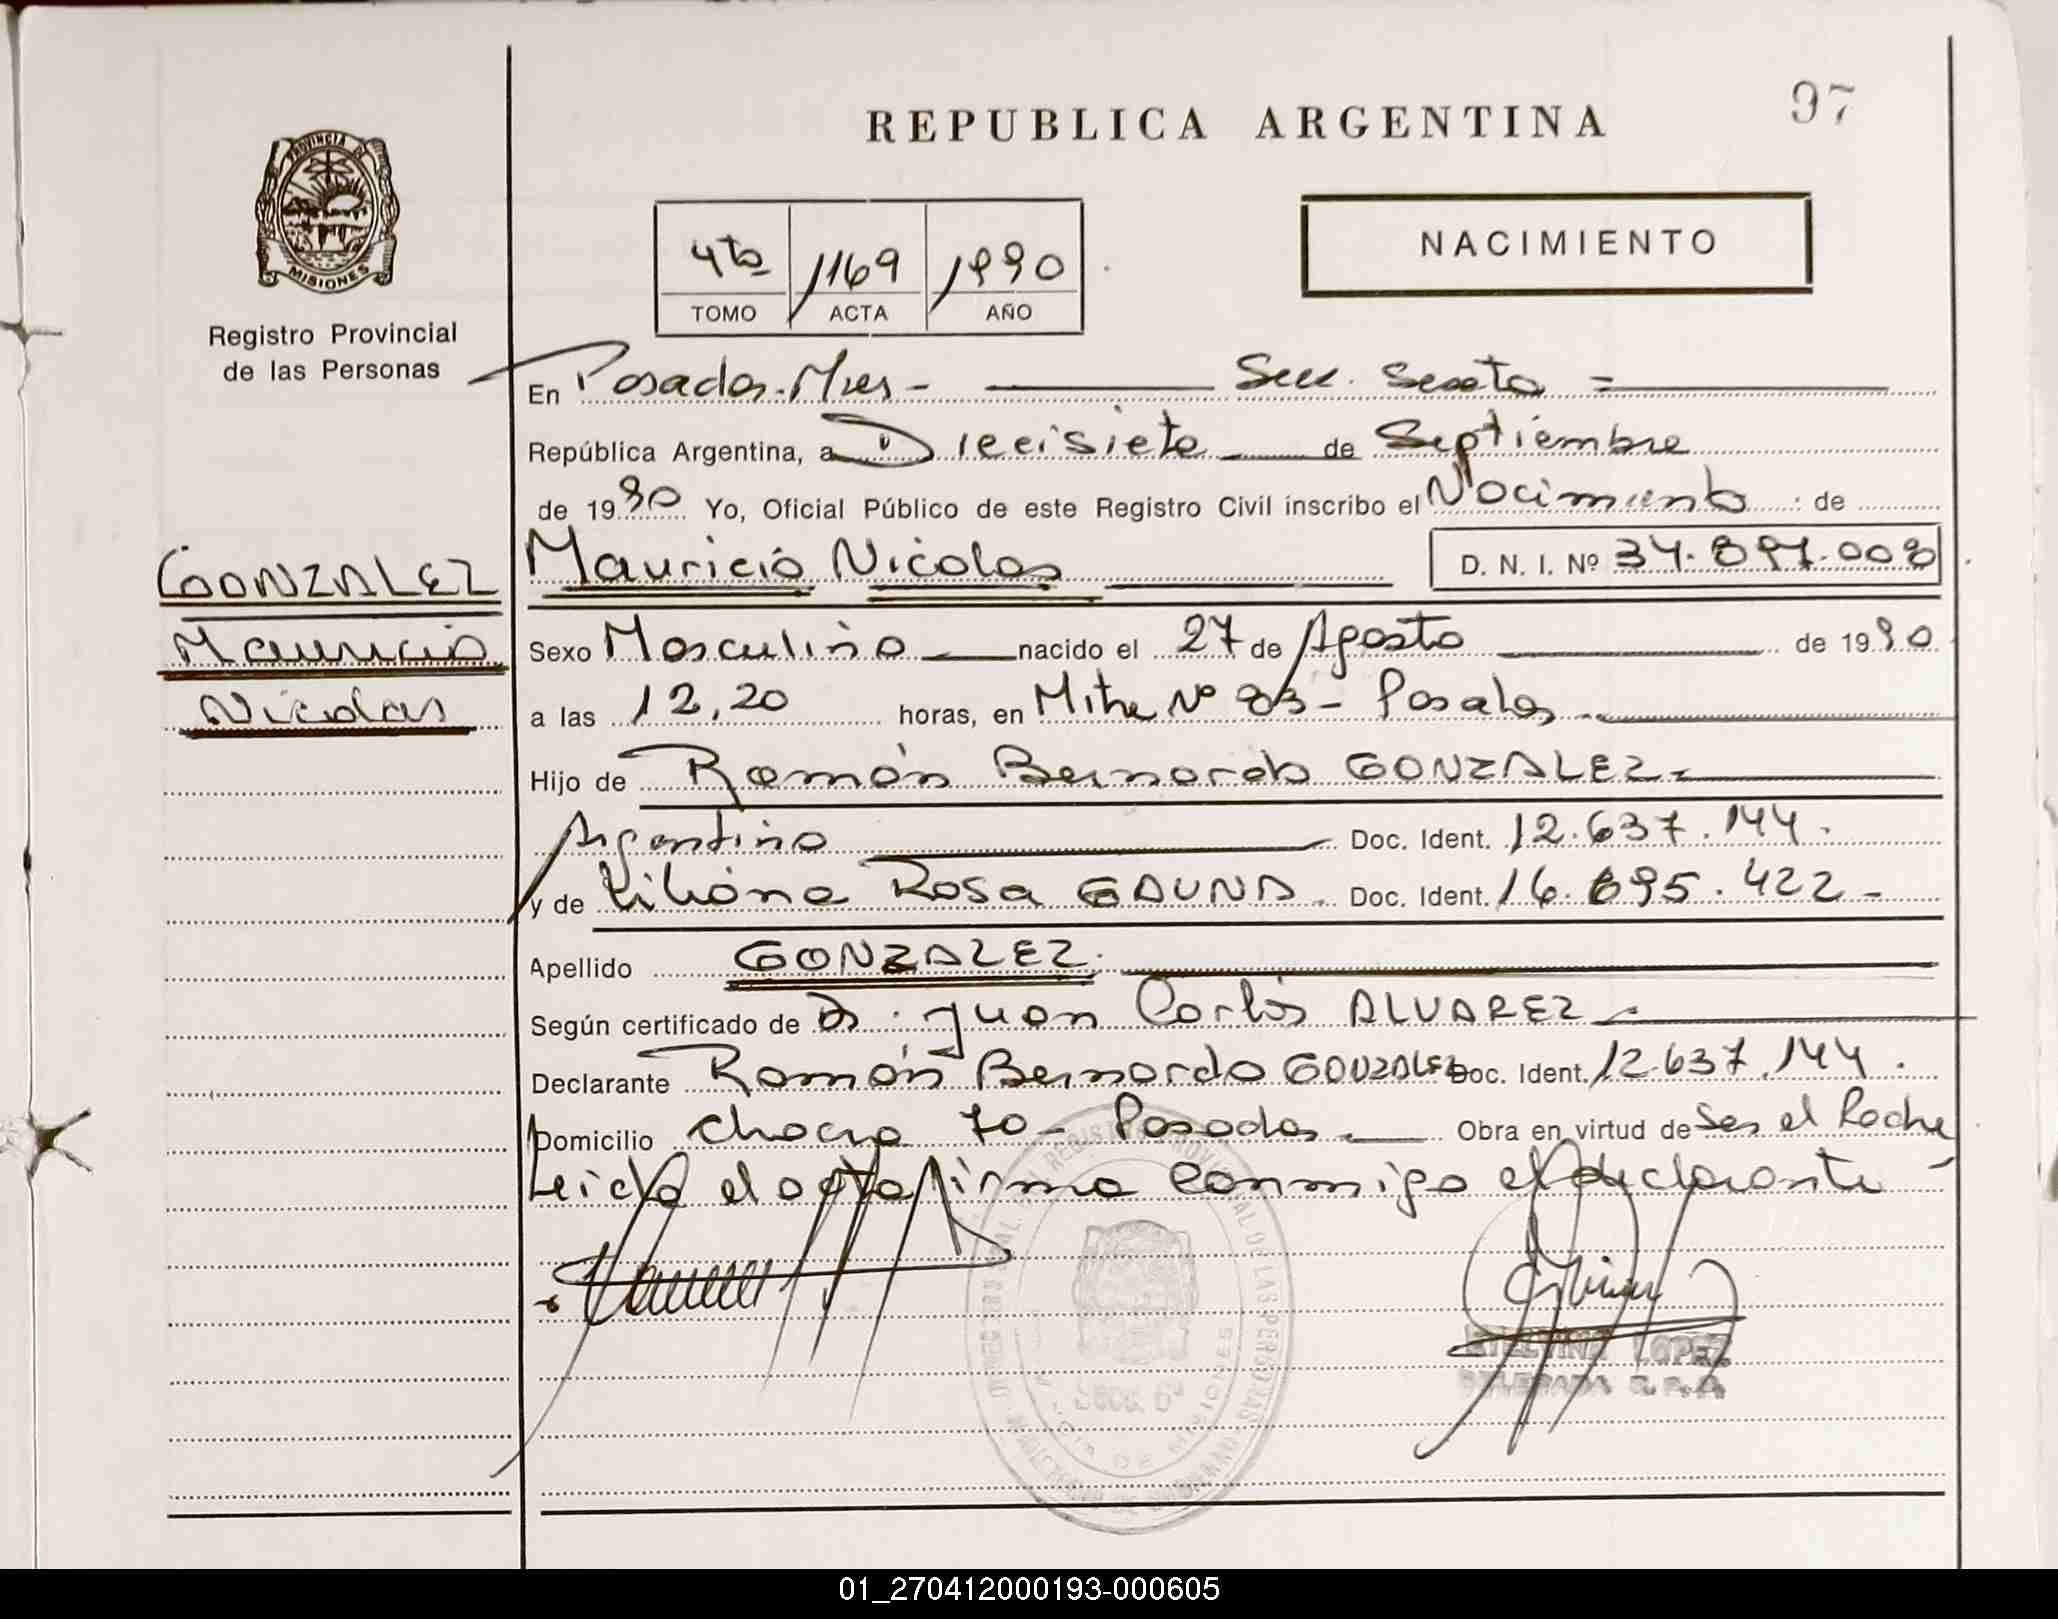 REPUBLICA ARGENTINA
97
PROVINCIA DE
MISIONES
Registro Provincial
de las Personas
4to 1169 1990
TOMO ACTA AÑO
NACIMIENTO
En Posadas-Mnes- Secc. Sexta =
República Argentina, a Diecisiete de Septiembre
de 1990 Yo, Oficial Público de este Registro Civil inscribo el Nacimiento : de
GONZALEZ
Mauricio
Nicolas
Mauricio Nicolas D. N. I. Nº 34.897.008
Sexo Masculino nacido el 27 de Agosto de 1990
a las 12,20 horas, en Mitre Nº 83 - Posadas
Hijo de Ramón Bernardo GONZALEZ
Argentino Doc. Ident. 12.637.144.
y de Liliana Rosa GAUNA Doc. Ident. 16.695.422-
Apellido GONZALEZ.
Según certificado de Dr. Juan Carlos ALVAREZ
Declarante Ramón Bernardo GONZALEZ Doc. Ident. 12.637.144.
Domicilio 70- Posadas Obra en virtud de Ser el Padre
Leida el acta firma conmigo el declarante
LOPEZ
DELEGADA
SECC. 6ª
01_270412000193-000605